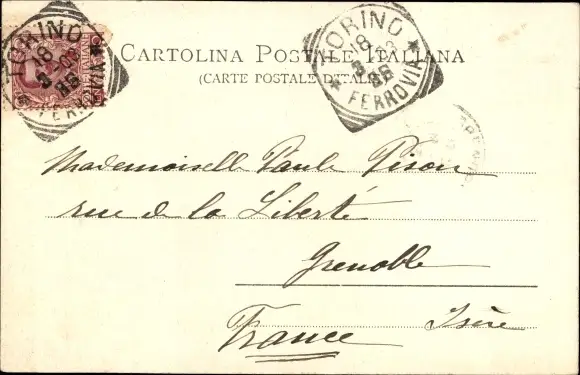 TORINO
18
3-03
8S
FERROVIA
CARTOLINA POSTALE ITALIANA
(CARTE POSTALE D'ITALIE)
TORINO
18
8S
FERROVIA
Mademoiselle Paule Pison
rue de la Liberté
Grenoble
Isère
France